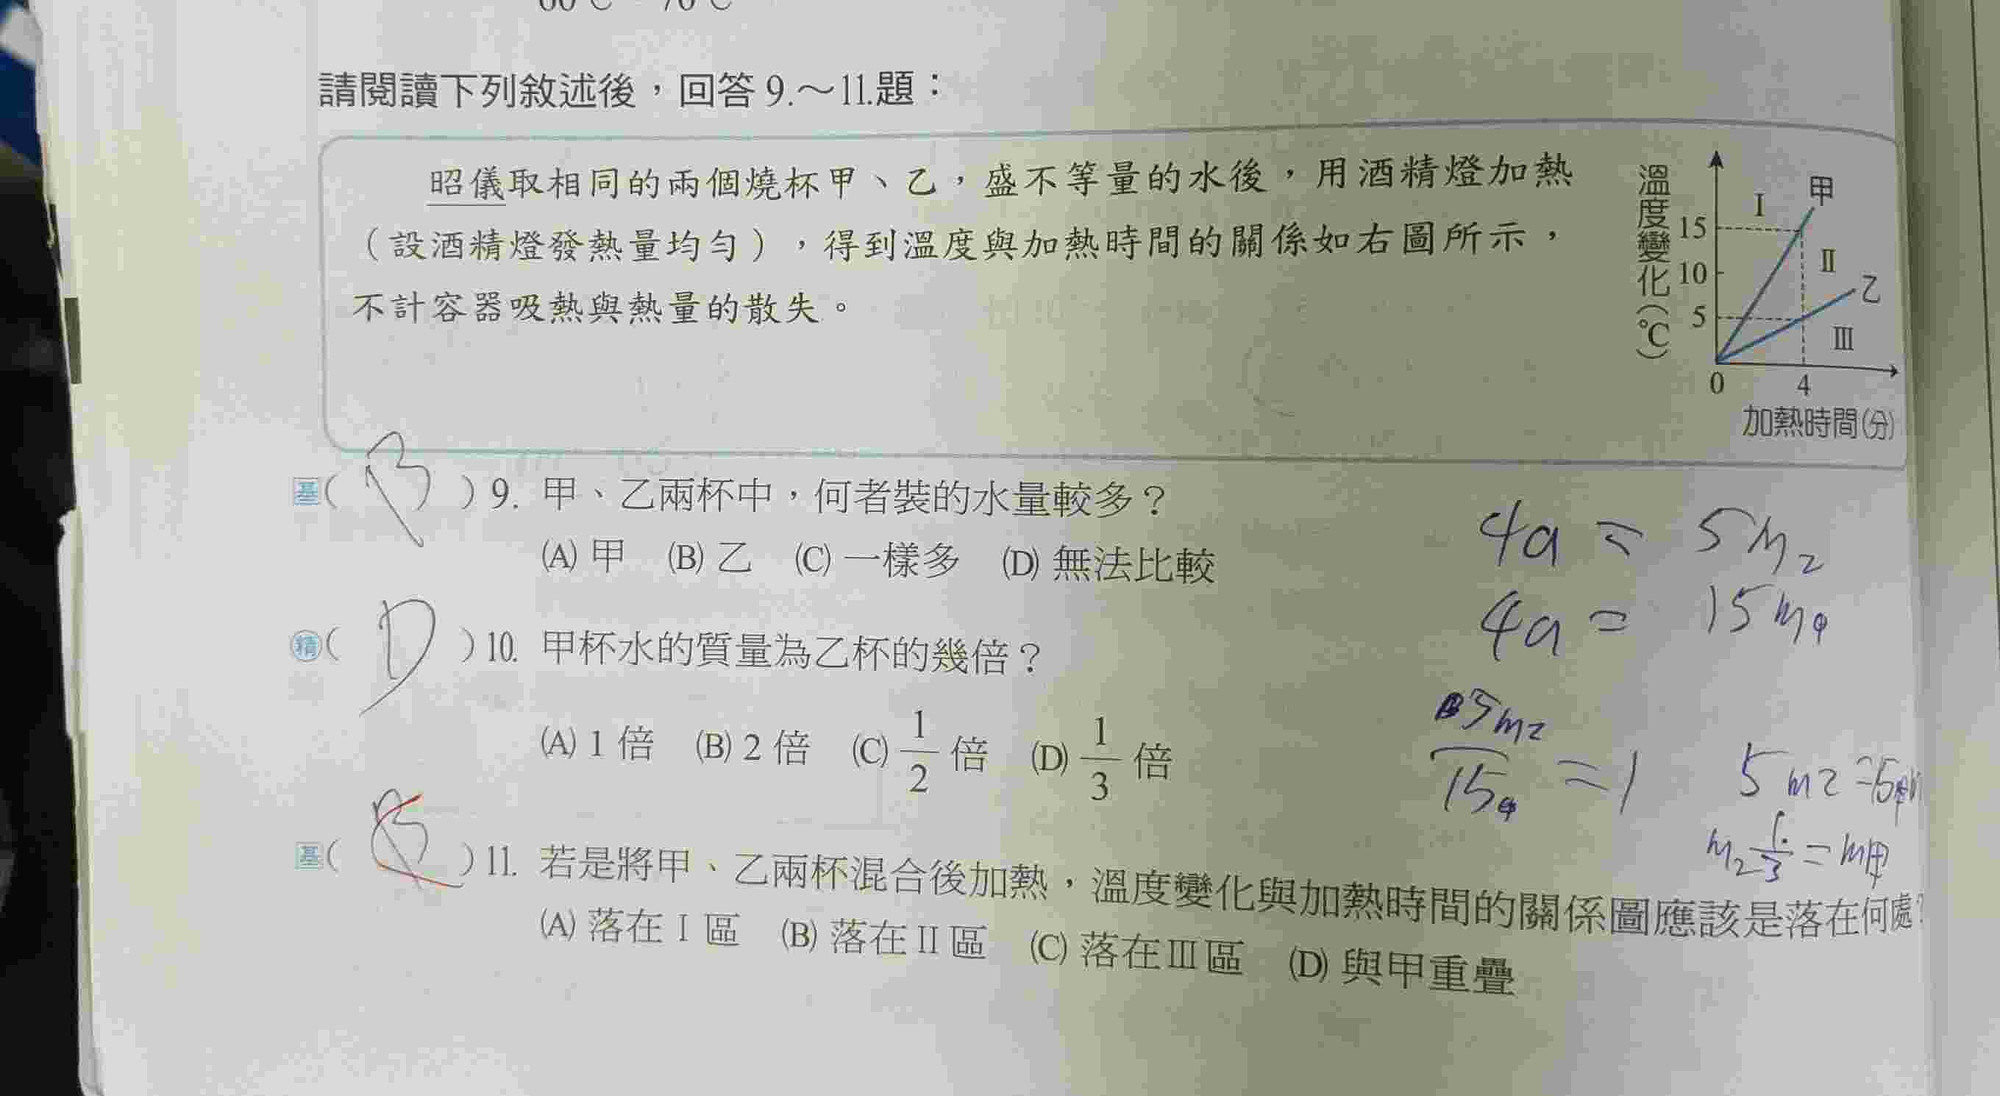 60℃ 70℃
請閱讀下列敘述後，回答9.～11.題：
昭儀取相同的兩個燒杯甲、乙，盛不等量的水後，用酒精燈加熱
（設酒精燈發熱量均勻），得到溫度與加熱時間的關係如右圖所示，
不計容器吸熱與熱量的散失。
溫度變化(℃)
15
10
5
0
4
I
甲
II
乙
III
加熱時間(分)
基( B )9. 甲、乙兩杯中，何者裝的水量較多？
(A) 甲 (B) 乙 (C) 一樣多 (D) 無法比較
精( D )10. 甲杯水的質量為乙杯的幾倍？
(A) 1 倍 (B) 2 倍 (C) 1/2 倍 (D) 1/3 倍
基( )11. 若是將甲、乙兩杯混合後加熱，溫度變化與加熱時間的關係圖應該是落在何處？
(A) 落在 I 區 (B) 落在 II 區 (C) 落在 III 區 (D) 與甲重疊
4a = 5m乙
4a = 15m甲
5m乙
15甲 = 1